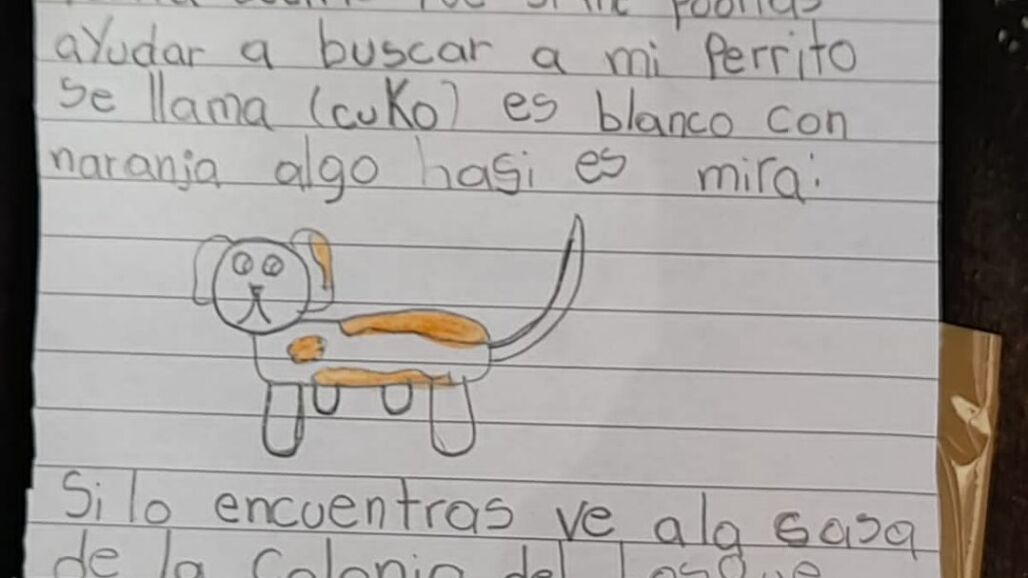 podrias
ayudar a buscar a mi Perrito
se llama (cuKo) es blanco con
naranja algo hasi es mira:
Si lo encuentras ve ala casa
de la Colonia del